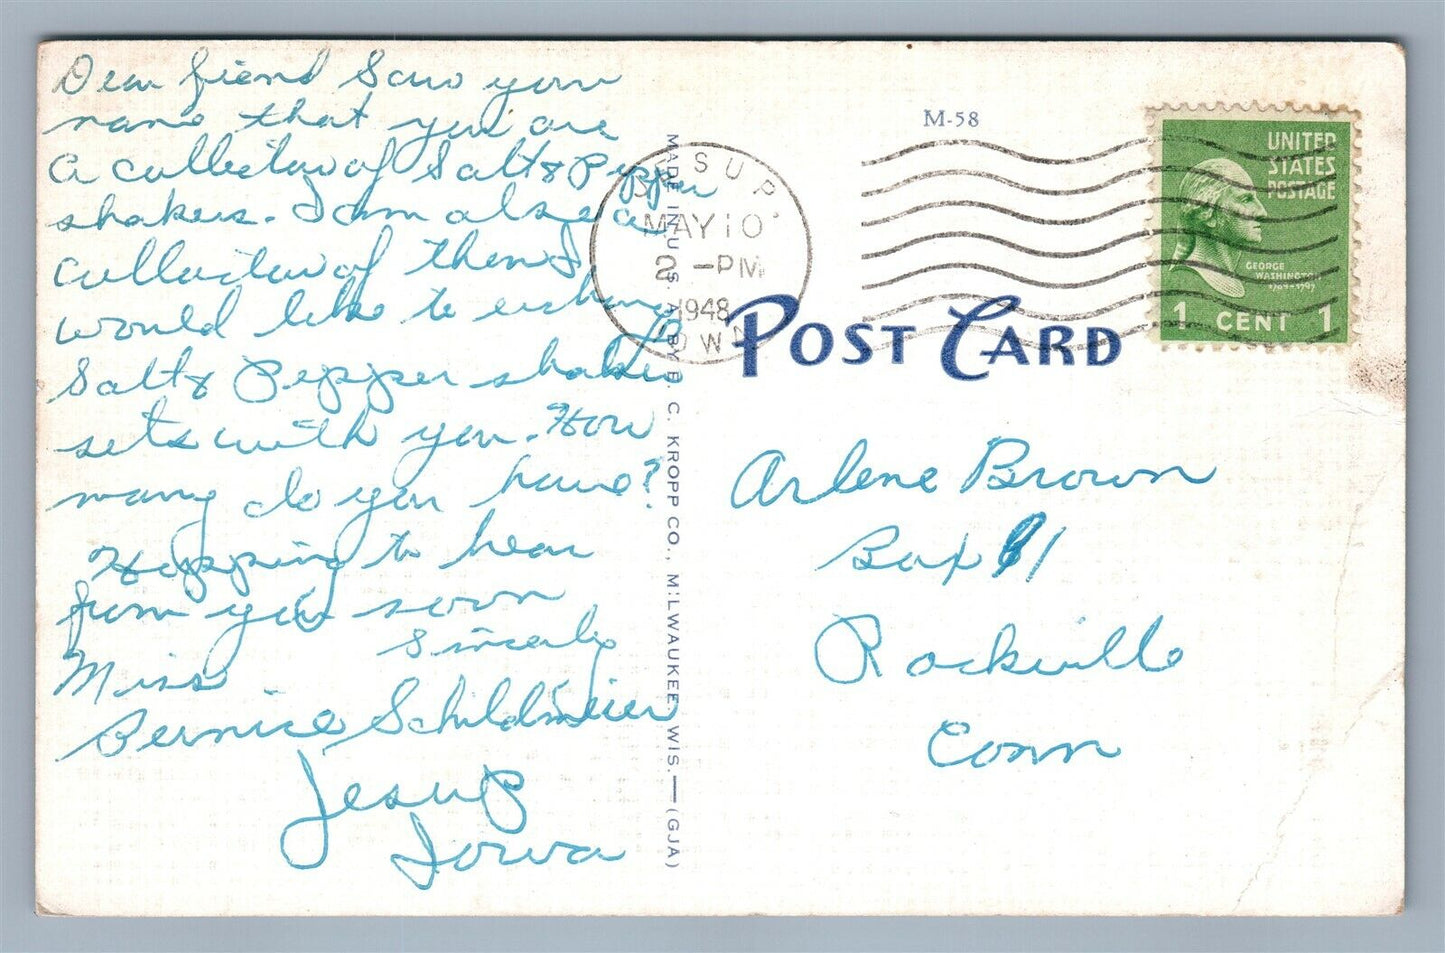 Dear friend Saw your
name that you are
a collector of Salt & Pepper
shakers. I am also a
collector of them I
would like to exchang
Salt & Pepper shaker
sets with you. How
many do you have?
Hopping to hear
from you soon
Sincerly
Miss
Bernice Schildmeier
Jesup
Iowa
MADE IN U. S. A. BY E. C. KROPP CO., MILWAUKEE, WIS.—(GJA)
JESUP
MAY 10
2 -PM
1948
IOWA
M-58
POST CARD
UNITED
STATES
POSTAGE
GEORGE
WASHINGTON
1789-1797
1 CENT 1
Arlene Brown
Box 1
Rockville
Conn